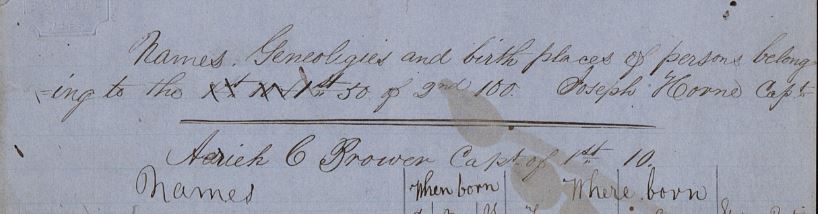 Names. Geneoligies and birth places of persons belong
=ing to the 1st 50 of 2nd 100. Joseph Horne Capt=
Ariek C Brower Capt of 1st 10.
Names When born Where born